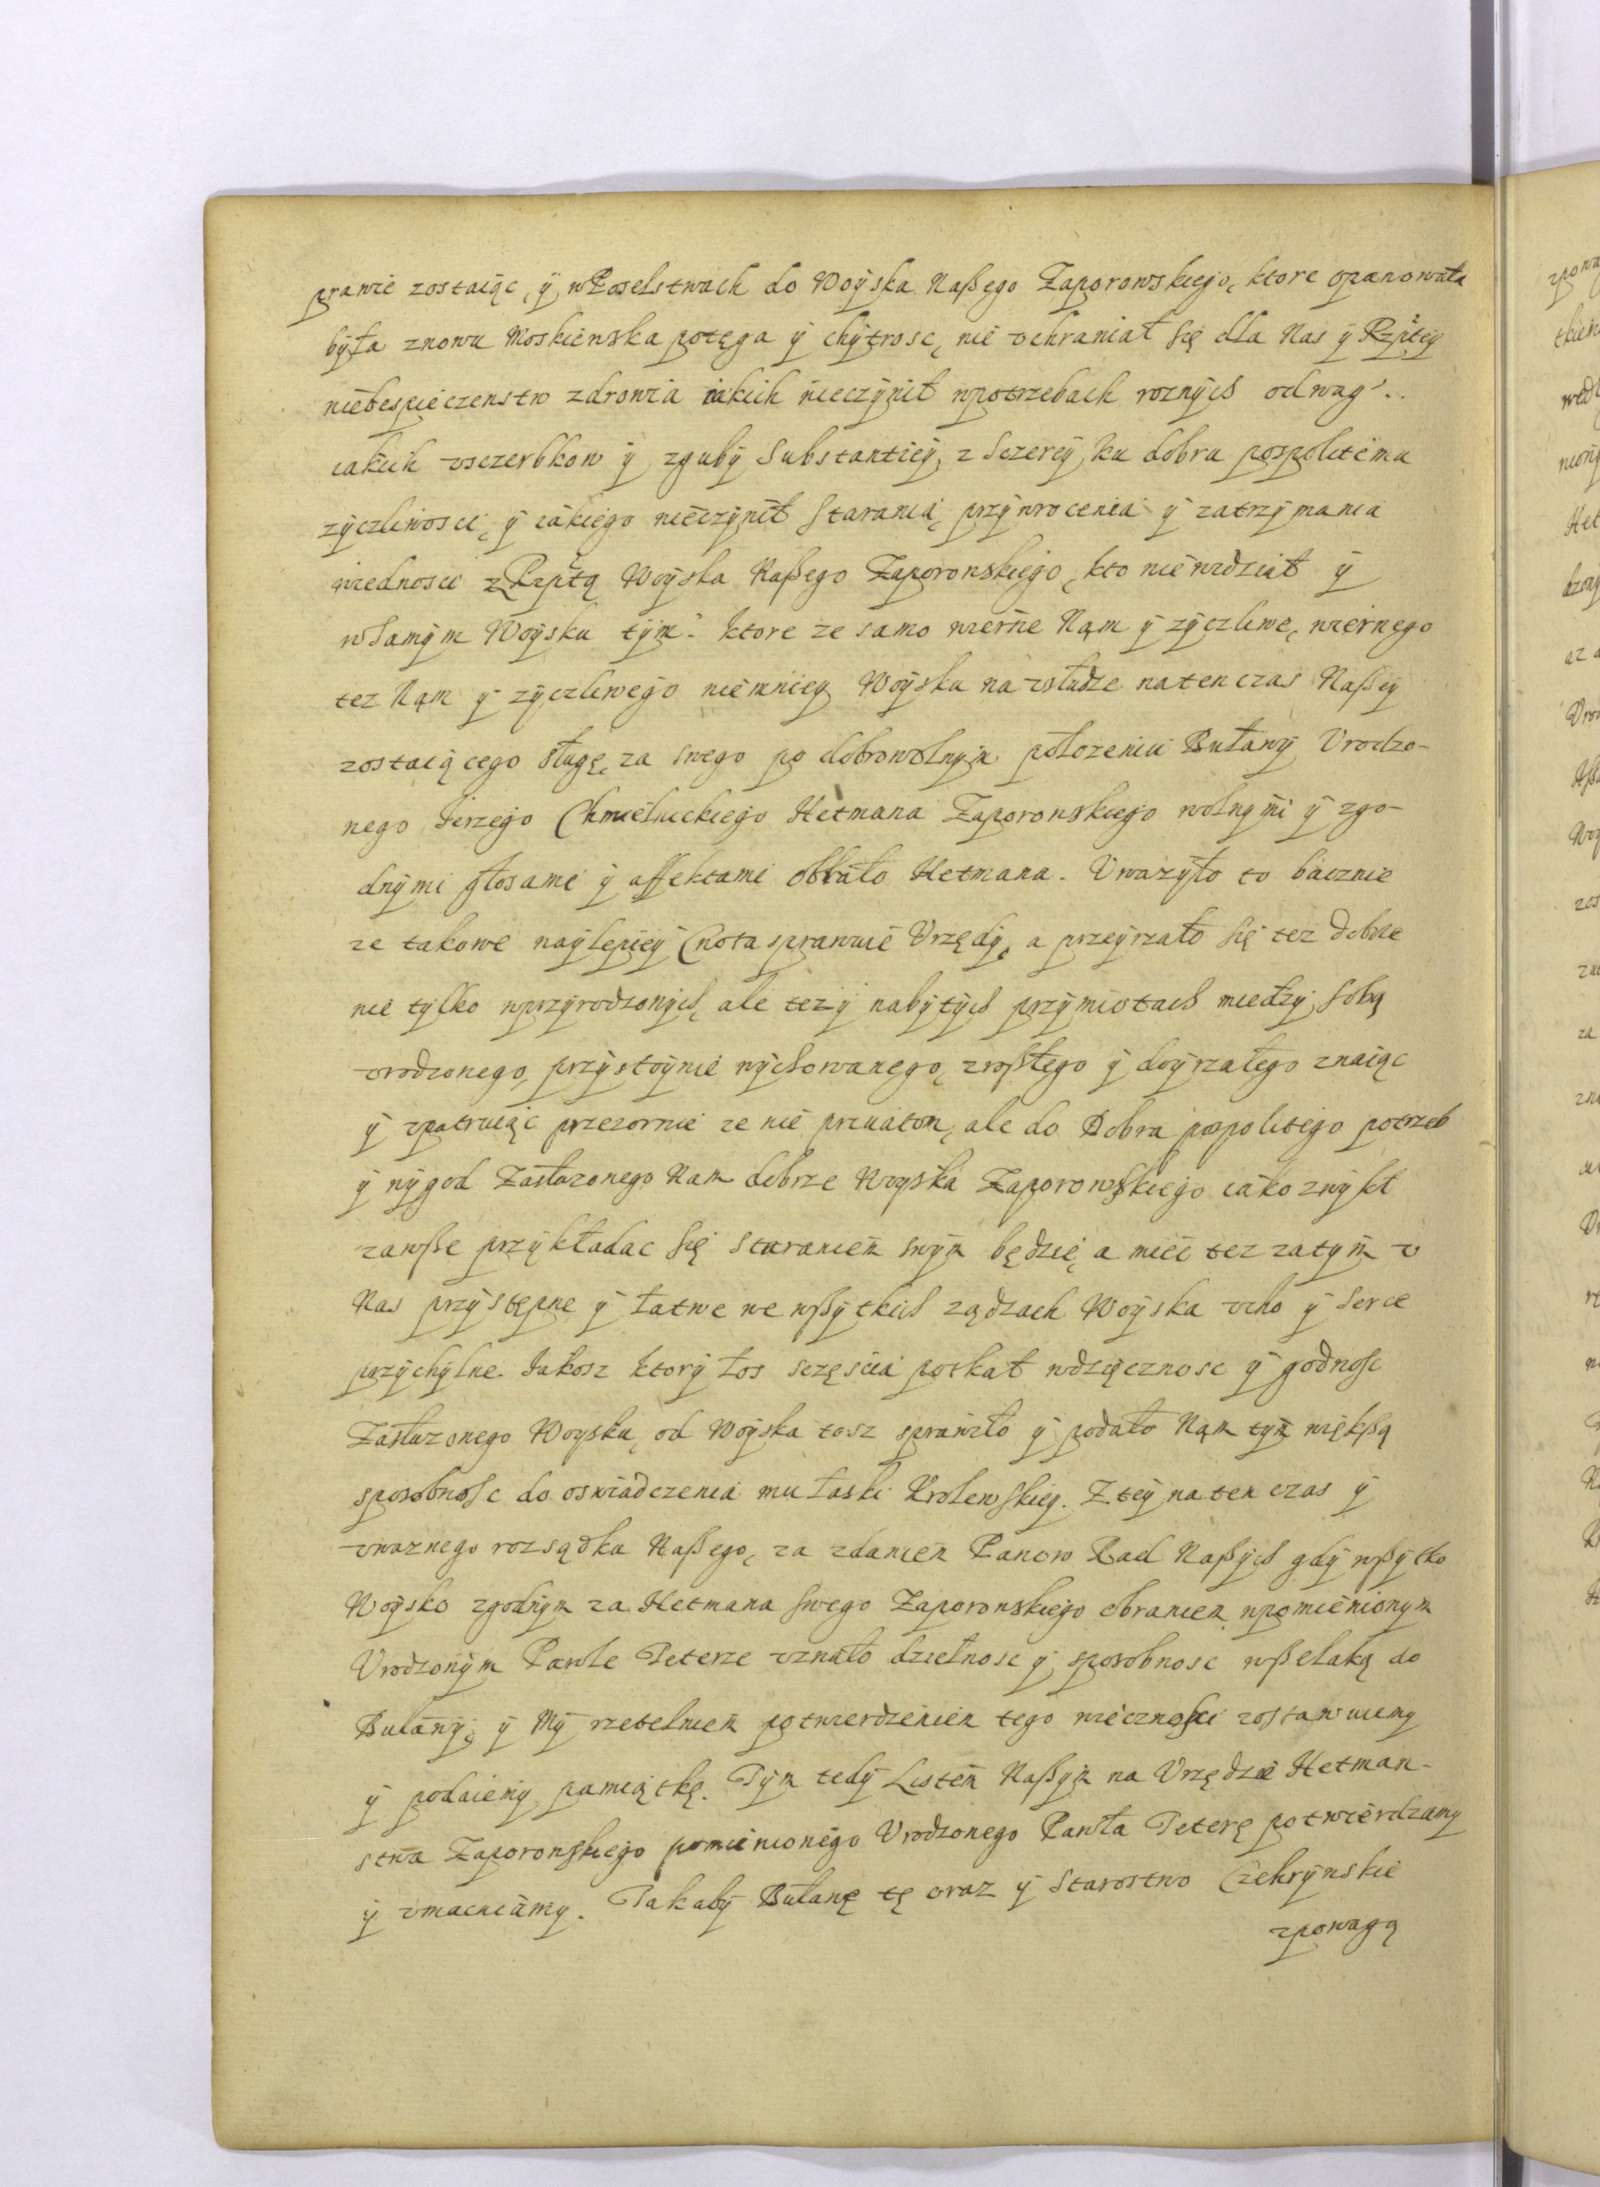 prawie zostaiąc, ÿ wPoselstwach do Woÿska Naßego Zaporowskiego, ktore opanowała
bÿła znowu Moskiewska potęga ÿ chÿtrosc, nie vchraniał Się dla Nas ÿ Rzptey
niebespieczenstw zdrowia iakich nieczÿnił wpotrzebach roznÿch odwag
iakich vsczerbkow ÿ zgubÿ Substantieÿ, z Sczereÿ ku dobru pospolitemu
zÿczliwosci, ÿ iakiego nieczÿnił Starania, przÿwrocenia ÿ zatrzÿmania
wiednosci zRzptą Woÿska Naßego Zaporowskiego, kto niewidział ÿ
wSamÿm Woÿsku tÿm. ktore ze samo wierne Nąm ÿ zÿczliwe, wiernego
tez Nąm ÿ zÿczliwego niemnieÿ Woÿsku na vsłudze natenczas Naßeÿ
zostaiącego sługę, za swego po dobrowolnÿm położeniu Buławÿ Vrodzo-
nego Jerzego Chmielnickiego Hetmana Zaporowskiego wolnÿmi ÿ zgo-
dnÿmi głosami ÿ affektami obrało Hetmana. Vważÿło to bacznie
ze takowe naÿlepieÿ Cnota sprawuie Vrzędÿ, a przeÿrzało Się tez dobrze
nie tÿlko wprzÿrodzonÿch, ale tez ÿ nabÿtÿch przÿmiotach miedzÿ Sobą
vrodzonego, przÿstoÿnie wÿchowanego, zroßłego ÿ doÿrzałego znaiąc
ÿ vpatruiąc przezornie ze nie priuatom, ale do Dobra pospolitego potrzeb
ÿ wÿgod Zasłuzonego Nam dobrze Woÿska Zaporowskiego iako zwÿkł
zawße przÿkładac Się Staraniem swÿm będzie, a miec tez zatÿm v
Nas przÿstępne ÿ łatwe we wßÿtkich ządzach Woÿska vcho ÿ Serce
przÿchÿlne. Jakosz ktorÿ los sczęscia potkał wdzięcznosc ÿ godnosc
Zasłuzonego Woÿsku, od Woÿska tosz sprawiło ÿ podało Nąm tÿm więkßą
sposobnosc do oswiadczenia mu łaski Krolewskieÿ. Z teÿ na ten czas ÿ
vwaznego rozsądku Naßego, za zdaniem Panow Rad Naßÿch gdÿ wßÿtko
Woÿsko zgodnÿm za Hetmana Swego Zaporowskiego obraniem wpomienionÿm
Vrodzonÿm Pawle Teterze vznało dzielnosc ÿ sposobnosc wßelaką do
Buławÿ, ÿ Mÿ rzetelniem potwierdzeniem tego wiecznosci zostawuiemÿ
ÿ podaiemÿ pamiątkę. Tÿm tedÿ Listem Naßÿm na Vrzędzie Hetman-
stwa Zaporowskiego pomienionego Vrodzonego Pawła Teterę potwierdzamÿ
ÿ vmacniamÿ. Takabÿ Buławę tę oraz ÿ Starostwo Czehrÿnskie
zpowagą